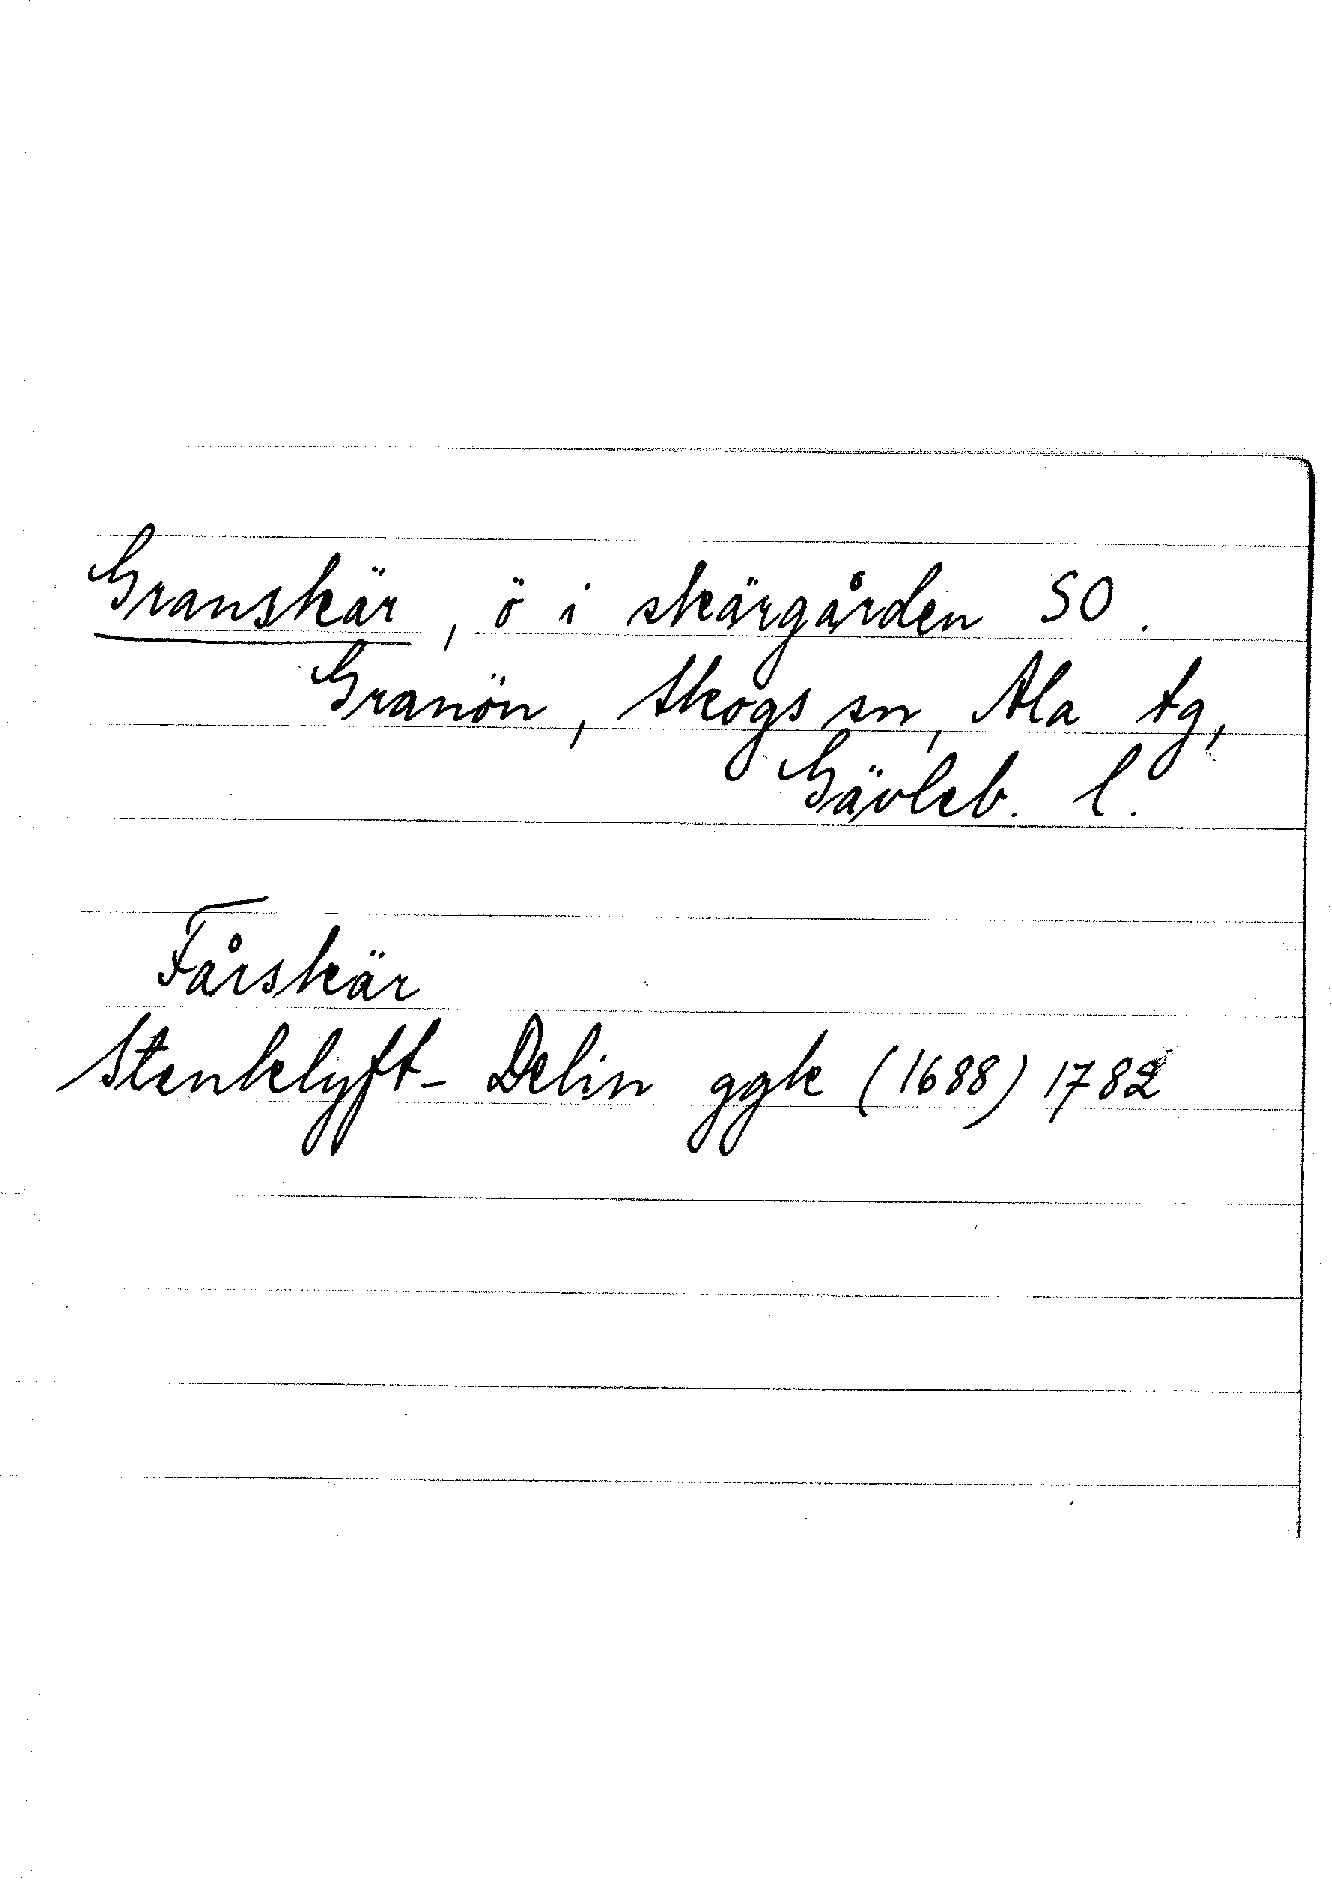 Granskär, ö i skärgården SO.
Granön, Skogs sn, Ala tg,
Gävleb. l.
Fårskär
Stenklyft- Delin ggk (1688) 1782